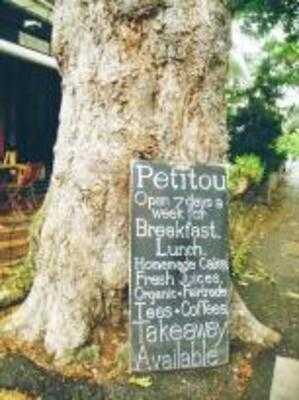 Petitou
Open 7 days a
week for
Breakfast,
Lunch,
Homemade Cakes,
Fresh Juices,
Organic + Fairtrade
Teas + Coffees,
Takeaway
Available